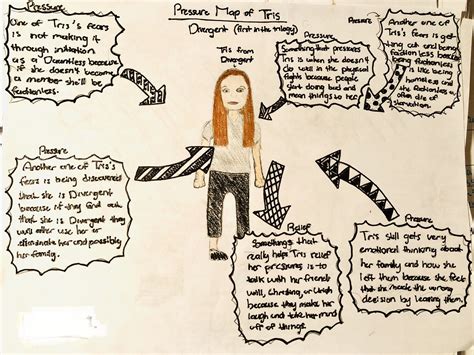 Pressure Map of Tris
Divergent (first in the trilogy)
Tris from
Divergent
Pressure
One of Tris's fears
is not making it
through initiation
as a Dauntless because
if she doesn't become
a member she'll be
factionless.
Pressure
Something that pressures
Tris is when she doesn't
do well in the physical
fights because people
start doing bad and
mean things to her.
Pressure
Another one of
Tris's fear is get
ting cut and being
factionless because
being factionless
is like being
homeless and
the factionless
often die of
starvation.
Pressure
Another one of Tris's
fears is being discovered
that she is Divergent
because if they find out
that she is Divergent they
will either use her or
eliminate her and possibly
her family.
Relief
Something that
really helps Tris relief
her pressures is to
talk with her friends
Will, Christina, or Uriah
because they make her
laugh and take her mind
off of things.
Pressure
Tris still gets very
emotional thinking about
her family and how she
left them because she feels
that she made the wrong
decision by leaving them.